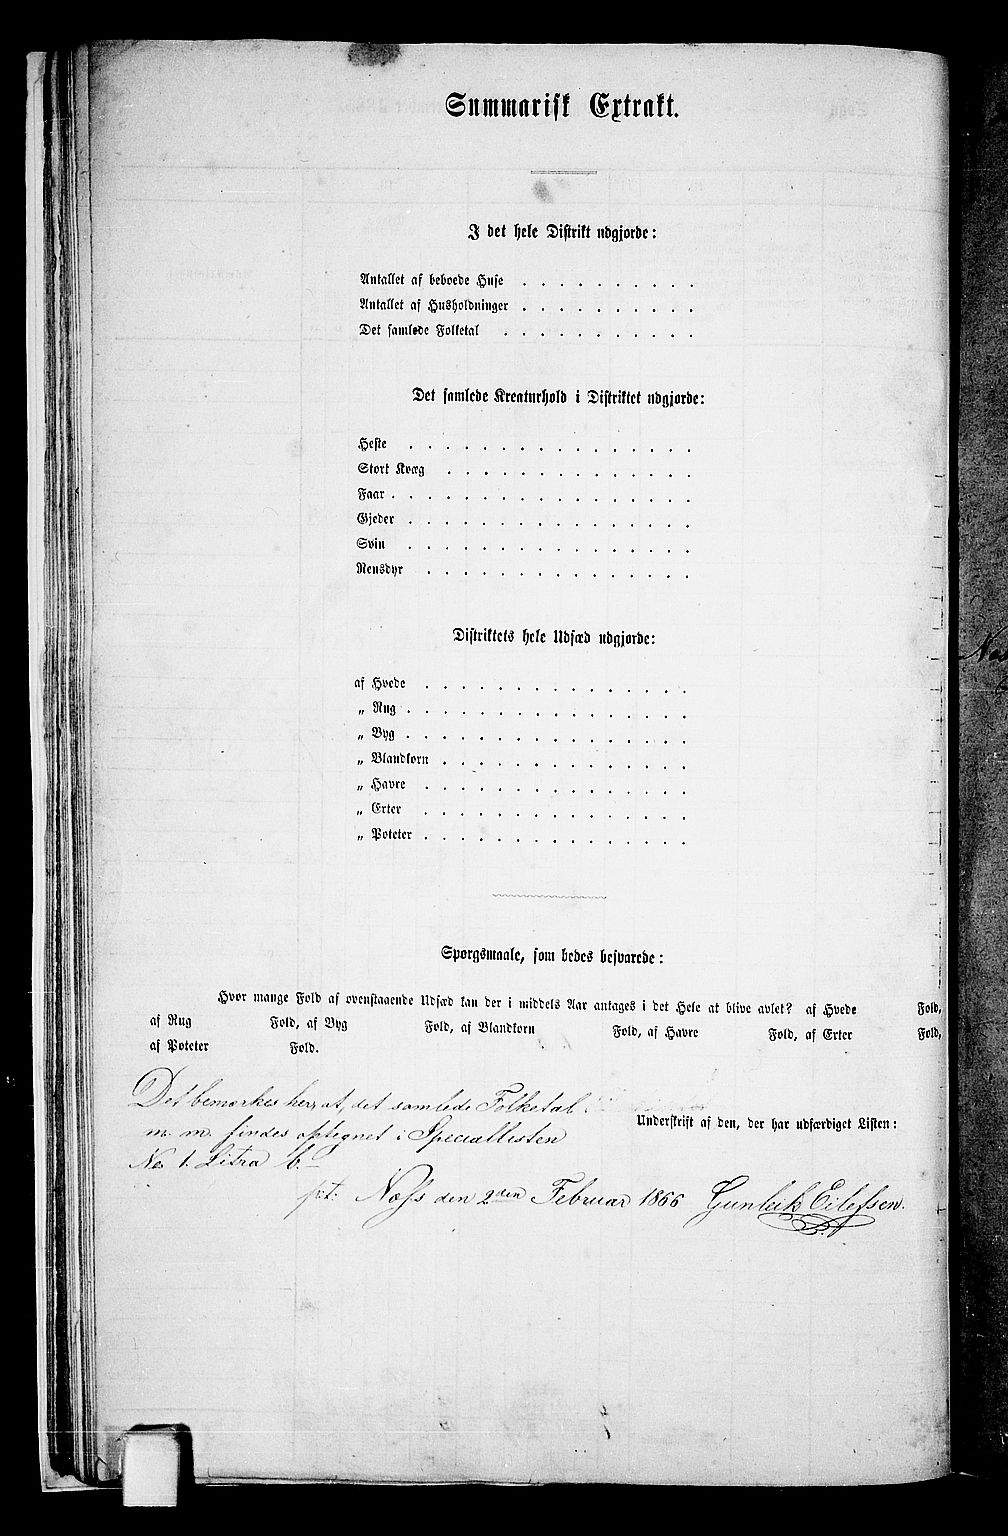 Summarisk Extrakt.
I det hele Distrikt udgjorde:
Antallet af beboede Huse . . . . . . . . . .
Antallet af Husholdninger . . . . . . . . . .
Det samlede Folketal . . . . . . . . . . .
Det samlede Kreaturhold i Distriktet udgjorde:
Heste . . . . . . . . . . . . . . . .
Stort Kvæg . . . . . . . . . . . . . .
Faar . . . . . . . . . . . . . . . . .
Gjeder . . . . . . . . . . . . . . . .
Svin . . . . . . . . . . . . . . . .
Rensdyr . . . . . . . . . . . . . . .
Distriktets hele Udsæd udgjorde:
af Hvede . . . . . . . . . . . . . . .
„ Rug . . . . . . . . . . . . . . . .
„ Byg . . . . . . . . . . . . . . . .
„ Blandkorn . . . . . . . . . . . . . .
„ Havre . . . . . . . . . . . . . . .
„ Erter . . . . . . . . . . . . . . .
„ Poteter . . . . . . . . . . . . . . .
Spørgsmaale, som bedes besvarede:
Hvor mange Fold af ovenstaaende Udsæd kan der i middels Aar antages i det Hele at blive avlet? af Hvede Fold,
af Rug Fold, af Byg Fold, af Blandkorn Fold, af Havre Fold, af Erter Fold,
af Poteter Fold.
Det bemærkes her, at det samlede Folketal
m. m. findes optegnet i Speciallisten
No 1. Litra b.
Underskrift af den, der har udfærdiget Listen:
pt. Næss den 2den Februar 1866 Gunleik Eilefsen.